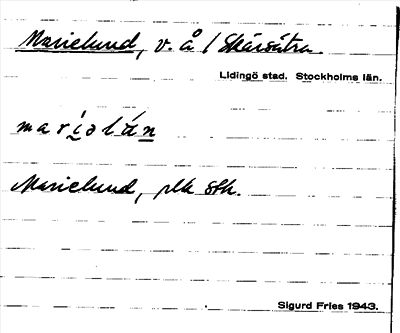 Marielund, v. å / Skärsätra.
Lidingö stad. Stockholms län.
mariəlún
Marielund, plk Sth.
Sigurd Fries 1943.